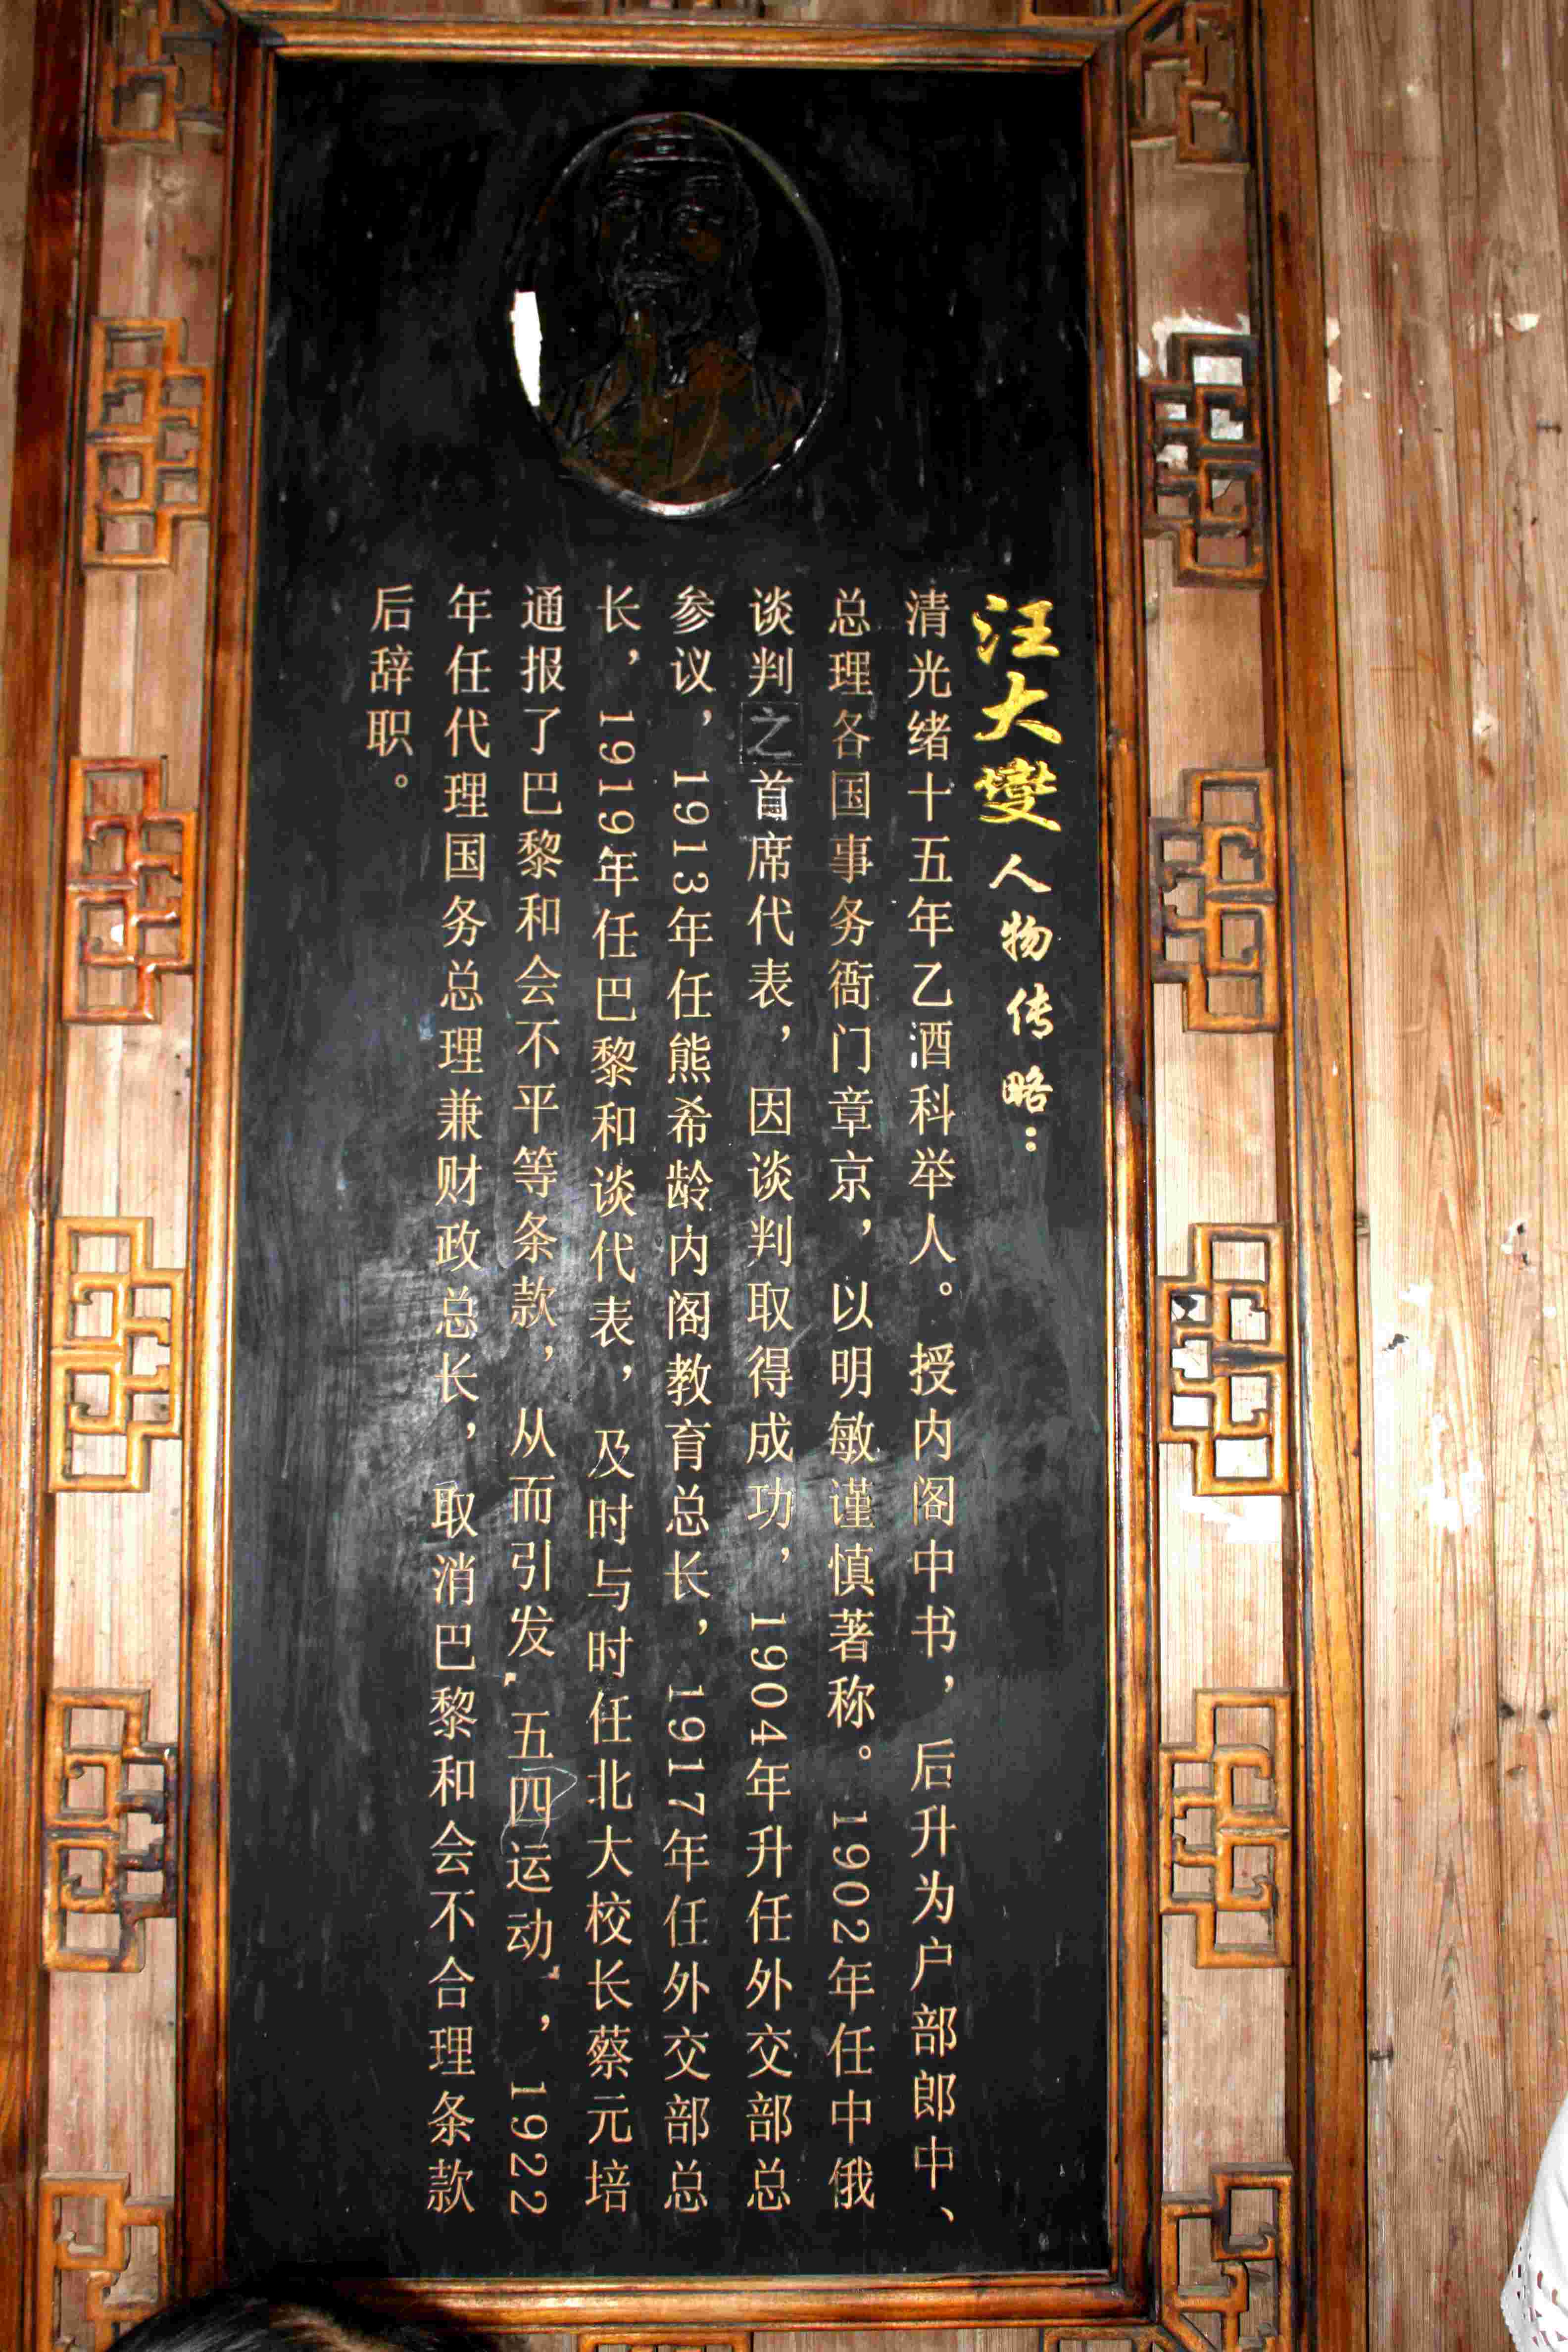 汪大燮人物传略：
清光绪十五年乙酒科举人。授内阁中书，后升为户部郎中、
总理各国事务衙门章京，以明敏谨慎著称。1902年任中俄
谈判之首席代表，因谈判取得成功，1904年升任外交部总
参议，1913年任熊希龄内阁教育总长，1917年任外交部总
长，1919年任巴黎和谈代表，及时与时任北大校长蔡元培
通报了巴黎和会不平等条款，从而引发"五四运动"，1922
年任代理国务总理兼财政总长，取消巴黎和会不合理条款
后辞职。